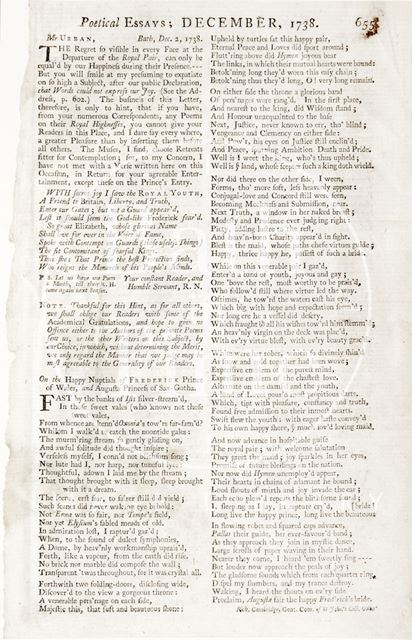 Poetical ESSAYS; DECEMBER, 1738. 655
Mr URBAN, Bath, Dec. 2, 1738.
THE Regret so visible in every Face at the
Departure of the Royal Pair, can only be
equal'd by our Happiness during their Presence.
But you will smile at my presuming to expatiate
on so high a Subject, after our public Declaration,
that Words could not express our Joy. (See the Ad-
dress, p. 602.) The business of this Letter,
therefore, is only to hint, that if you have,
from your numerous Correspondents, any Poems
on their Royal Highnesses, you cannot give your
Readers in this Place, and I dare say every where,
a greater Pleasure than by inserting them before
all others. The Muses, I find, chuse Retreats
fitter for Contemplation; for, to my Concern, I
have not met with a Verse written here on this
Occasion, in Return for your agreeable Enter-
tainment, except these on the Prince's Entry.
WITH safety joy I saw the ROYAL YOUTH,
A Friend to Britain, Liberty, and Truth,
Enter our Gates; but no Guard appear'd,
Lest it should seem the God-like Frederick fear'd.
So great Elizabeth, whose glorious Name
Shall live for ever in the Voice of Fame,
Spoke with Contempt on Guards (those useless Things)
The Contentment of fearful Kings.
Thus shews That Prince the best Protection finds,
Who reigns the Monarch of his People's Minds.
P. S. Let us have one Parts Your constant Reader, and
a Month, till their R. H. Humble Servant, R. N.
came again next Season.
NOTE. Thankful for this Hint, as for all others,
we shall oblige our Readers with some of the
Academical Gratulations, and hope to give no
Offence either to the Authors of the private Poems
sent us, or the other Writers on this Subject, by
our Choice, in which, without determining the Merit,
we only regard the Manner that we judge may be
most agreeable to the Generality of our Readers.
On the Happy Nuptials of FREDERICK Prince
of Wales, and Augusta Princess of Sax-Gotha.
FAST by the banks of Isis silver-stream'd,
In those sweet vales (who knows not these
sweet vales,
From whence an henn'd Oxonia's tow'rs far-fam'd?
Whilom I walk'd to catch the noontide gales:
The murm'ring stream, so gently gliding on,
And awful solitude did thought inspire;
Versicles myself, I conn'd not
Nor lute had I, nor harp, nor tuneful lyre;
Thoughtful, adown I laid me by the stream;
That thought brought with it sleep, sleep brought
with it a dream.
The scene, erst fair, to fairer still did yield;
Such scenes did never waking eye behold;
Not Enna was so fair, nor Tempe's field,
Nor yet Elysium's fabled meads of old.
In admiration lost, I raptur'd gaz'd;
When, to the sound of dulcet symphonies,
A Dome, by heav'nly workmanship uprais'd,
Forth, like a vapour, from the earth did rise.
No brick nor marble did compose the wall;
Transparent 'twas throughout, for it was crystal all.
Forthwith two folding-doors, disclosing wide,
Discover'd to the view a gorgeous throne:
A venerable personage on each side,
Majestic this, that soft and beauteous shone:
Upheld by turtles sat this happy pair,
Eternal Peace and Loves did sport around;
Flutt'ring above did Hymen joyous bear
The links, in which their mutual hearts were bound:
Betok'ning long they'd worn this easy chain;
Betok'ning thus they'd long, O! very long remain.
On either side the throne a glorious band
Of personages were rang'd. In the first place,
And nearest to the king, did Wisdom stand;
And Honour tranquilized to the base
Next, Justice, never known to err, tho' blind;
Vengeance and Clemency on either side:
And Pow'r, his eyes on Justice still enclin'd;
And Peace, spurning Ambition, Death and Pride.
Well is I weet the king, who's thus upheld;
Well is I land, whose scepter such a king doth wield.
Nor did there on the other side, I ween,
Forms, tho' more soft, less heavenly appear:
Conjugal-love and Concord still were seen,
Becoming Meekness and Submission, near.
Next Truth, a window in her naked breast;
Modesty and Prudence ever judging right:
Piety, adding lustre to the rest,
And heav'n-born Charity appear'd in sight.
Blest is the maid, whose paths these virtues guide;
Happy, thrice happy he, possest of such a bride.
While on this venerable pair I gaz'd,
Enter'd a band of youth, joyous and gay;
One 'bove the rest, most worthy to be prais'd,
Who follow'd still where virtue led the way.
Ofttimes, he tow'rd the waters cast his eye,
Which big with hope and expectation seem'd;
Nor long ere he a vessel did descry,
Which fraught all his wishes tow'rd him stemm'd;
An heav'nly virgin on the deck was plac'd,
With ev'ry virtue blest, with ev'ry beauty grac'd.
White were her robes, which so divinely shin'd
As snow and gold together had been wove;
Expressive emblem of the purest mind,
Expressive emblem of the chastest love.
Alternate on the damsel and the youth,
A band of Loves pour'd amorous propitious arts,
Which, tipt with pleasure, constancy and truth,
Found free admission to their inmost hearts.
Swift flew the youth; with eager haste convey'd
To his own happy shore, the much lov'd loving maid.
And now advance in hospitable guise
The royal pair; with welcome salutation
They greet the maid; joy sparkles in her eyes,
Promise of future blessings on the nation.
Nor now did Hymen unemploy'd appear,
Their hearts in chains of adamant he bound;
Loud shouts of mirth and joy invade the ear;
Each echo pleas'd repeats the blithsome sound;
I, sleeping as I lay, in rapture cry'd, [bride!
Long live the happy prince, long live the beauteous
In flowing robes and squared caps advance,
Pallas their guide, her ever-favour'd band;
As they approach they join in mystic dance,
Large scrolls of paper waving in their hand.
Nearer they come, I heard 'em sweetly sing
But louder now approach the peals of joy;
The gladsome sounds which from each quarter ring
Dispel my slumbers, and my trance destroy.
Waking, I heard the shouts on ev'ry side
Proclaim, Augusta fair the happy Fred'rick's bride.
Rich. Cambridge, Gent. Com. of St John's Coll. Oxon.